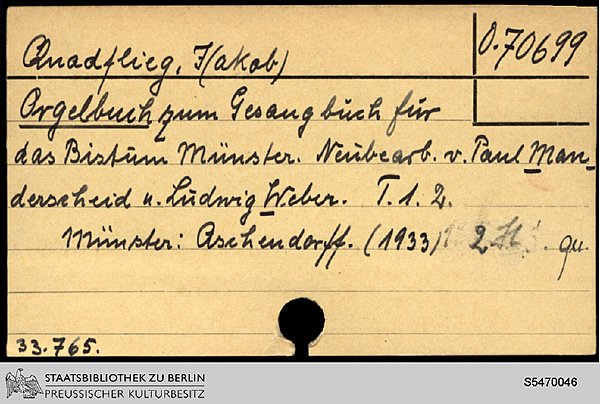 O.70699
Quadflieg, J(akob)
Orgelbuch zum Gesangbuch für
das Bistum Münster. Neubearb. v. Paul Man-
derscheid u. Ludwig Weber. T. 1. 2.
Münster: Aschendorff. (1933) 2 H. qu.
33.765.
STAATSBIBLIOTHEK ZU BERLIN
PREUSSISCHER KULTURBESITZ
S5470046